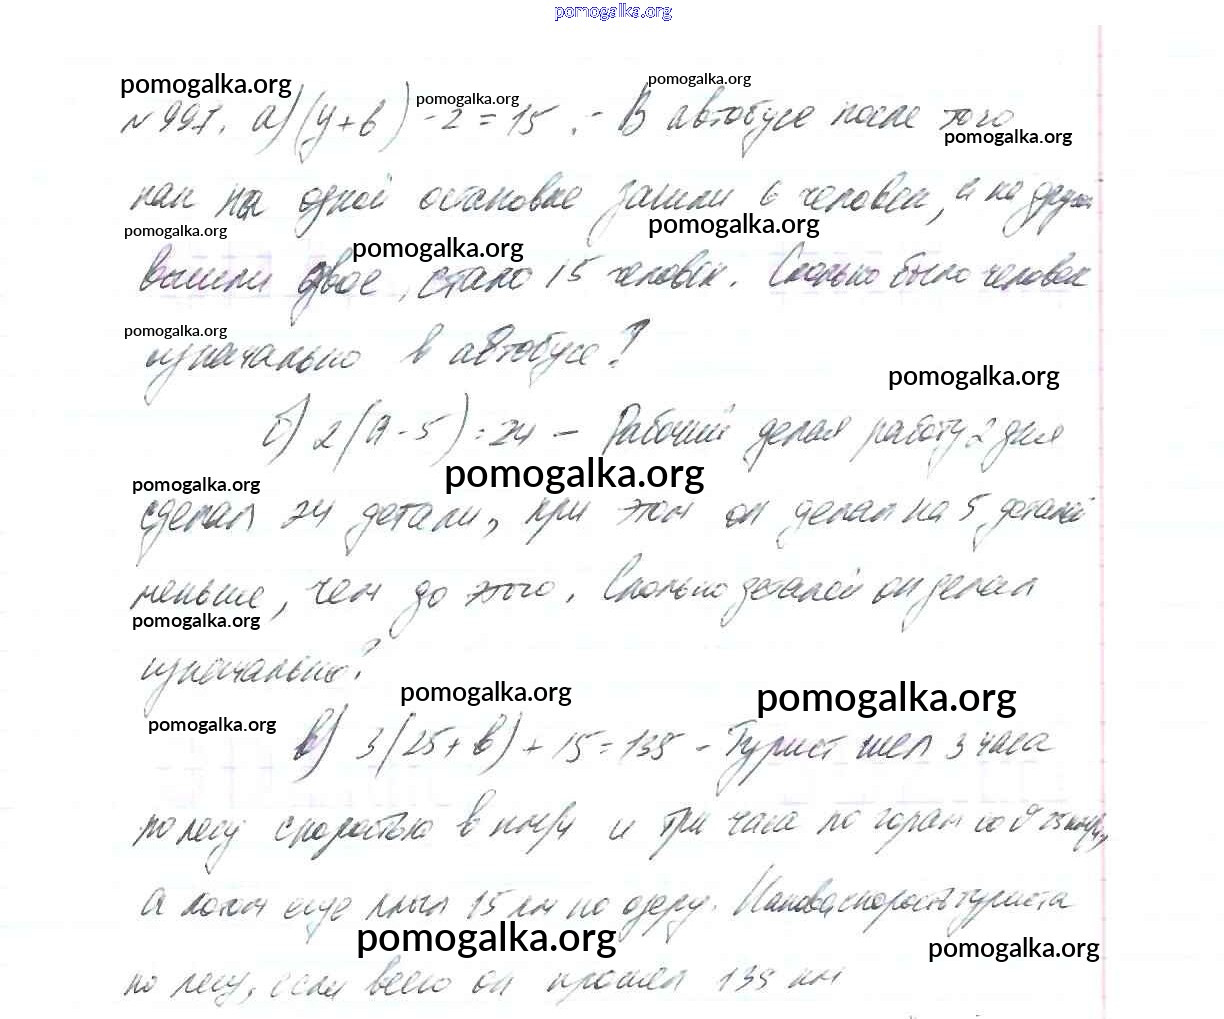 pomogalka.org
pomogalka.org pomogalka.org
№ 997. а) (y+6) -2 = 15 :- В автобусе после того
pomogalka.org pomogalka.org
как на одной остановке зашли 6 человек, а на другой
pomogalka.org pomogalka.org pomogalka.org
вышли двое, стало 15 человек. Сколько было человек
pomogalka.org
изначально в автобусе?
pomogalka.org
б) 2(а-5)=24 – Рабочий делая работу 2 дня
pomogalka.org
pomogalka.org
сделал 24 детали, при этом он делал на 5 деталей
меньше, чем до этого. Сколько деталей он делал
pomogalka.org
изначально?
pomogalka.org pomogalka.org
pomogalka.org
в) 3(25+в)+15=135 - Турист шел 3 часа
по лесу скоростью в км/ч и три часа по горам со 25 км/ч,
а потом еще плыл 15 км по озеру. Какова скорость туриста
pomogalka.org pomogalka.org
по лесу, если всего он прошел 135 км